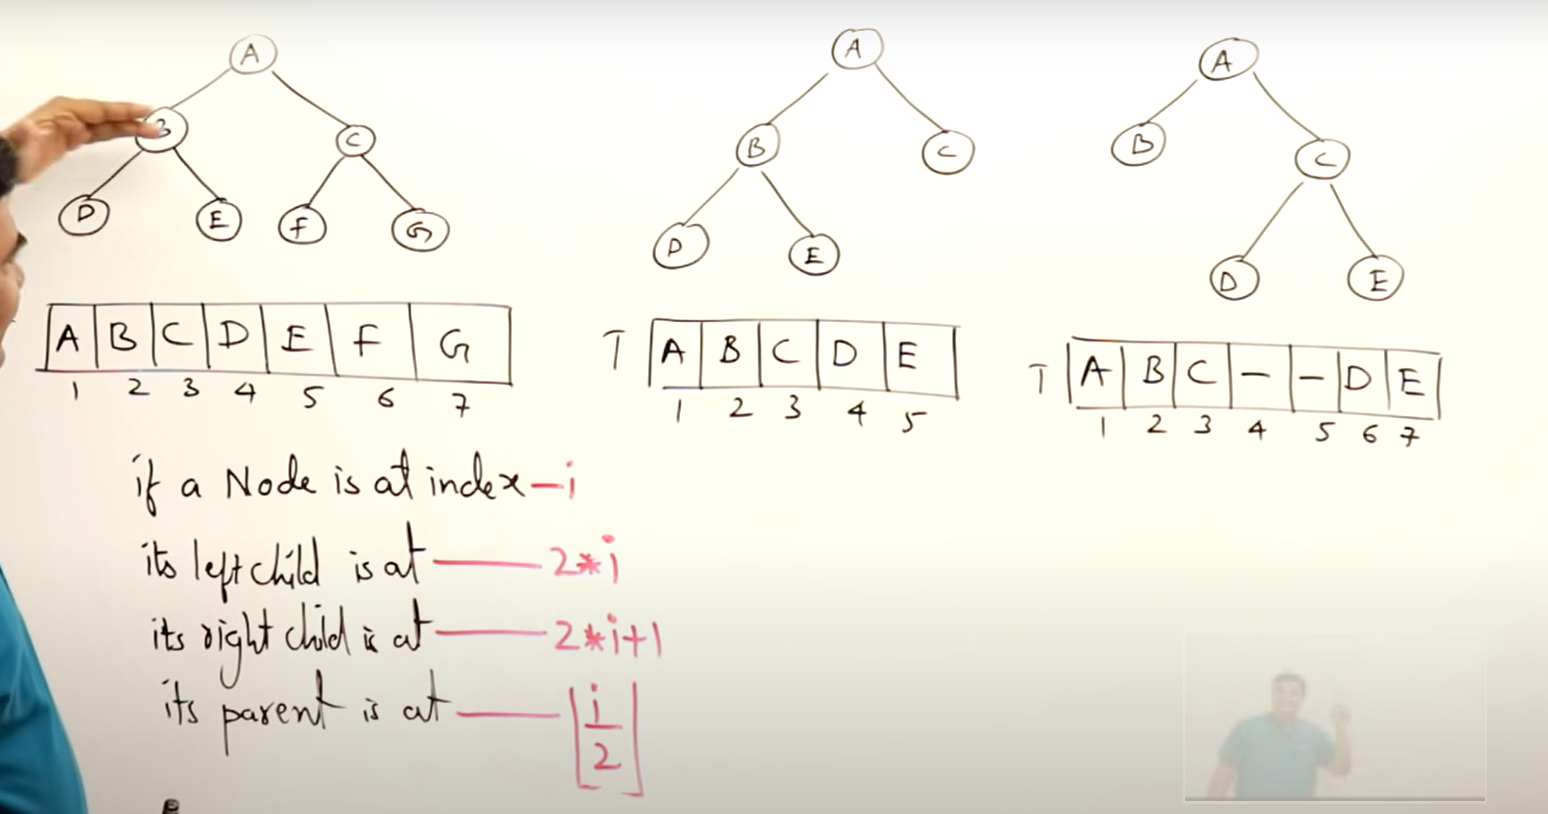 A
B
C
D
E
F
G
A B C D E F G
1 2 3 4 5 6 7
A
B
C
D
E
T A B C D E
1 2 3 4 5
A
B
C
D
E
T A B C — — D E
1 2 3 4 5 6 7
if a Node is at index — i
its left child is at — 2*i
its right child is at — 2*i+1
its parent is at — ⌊i/2⌋